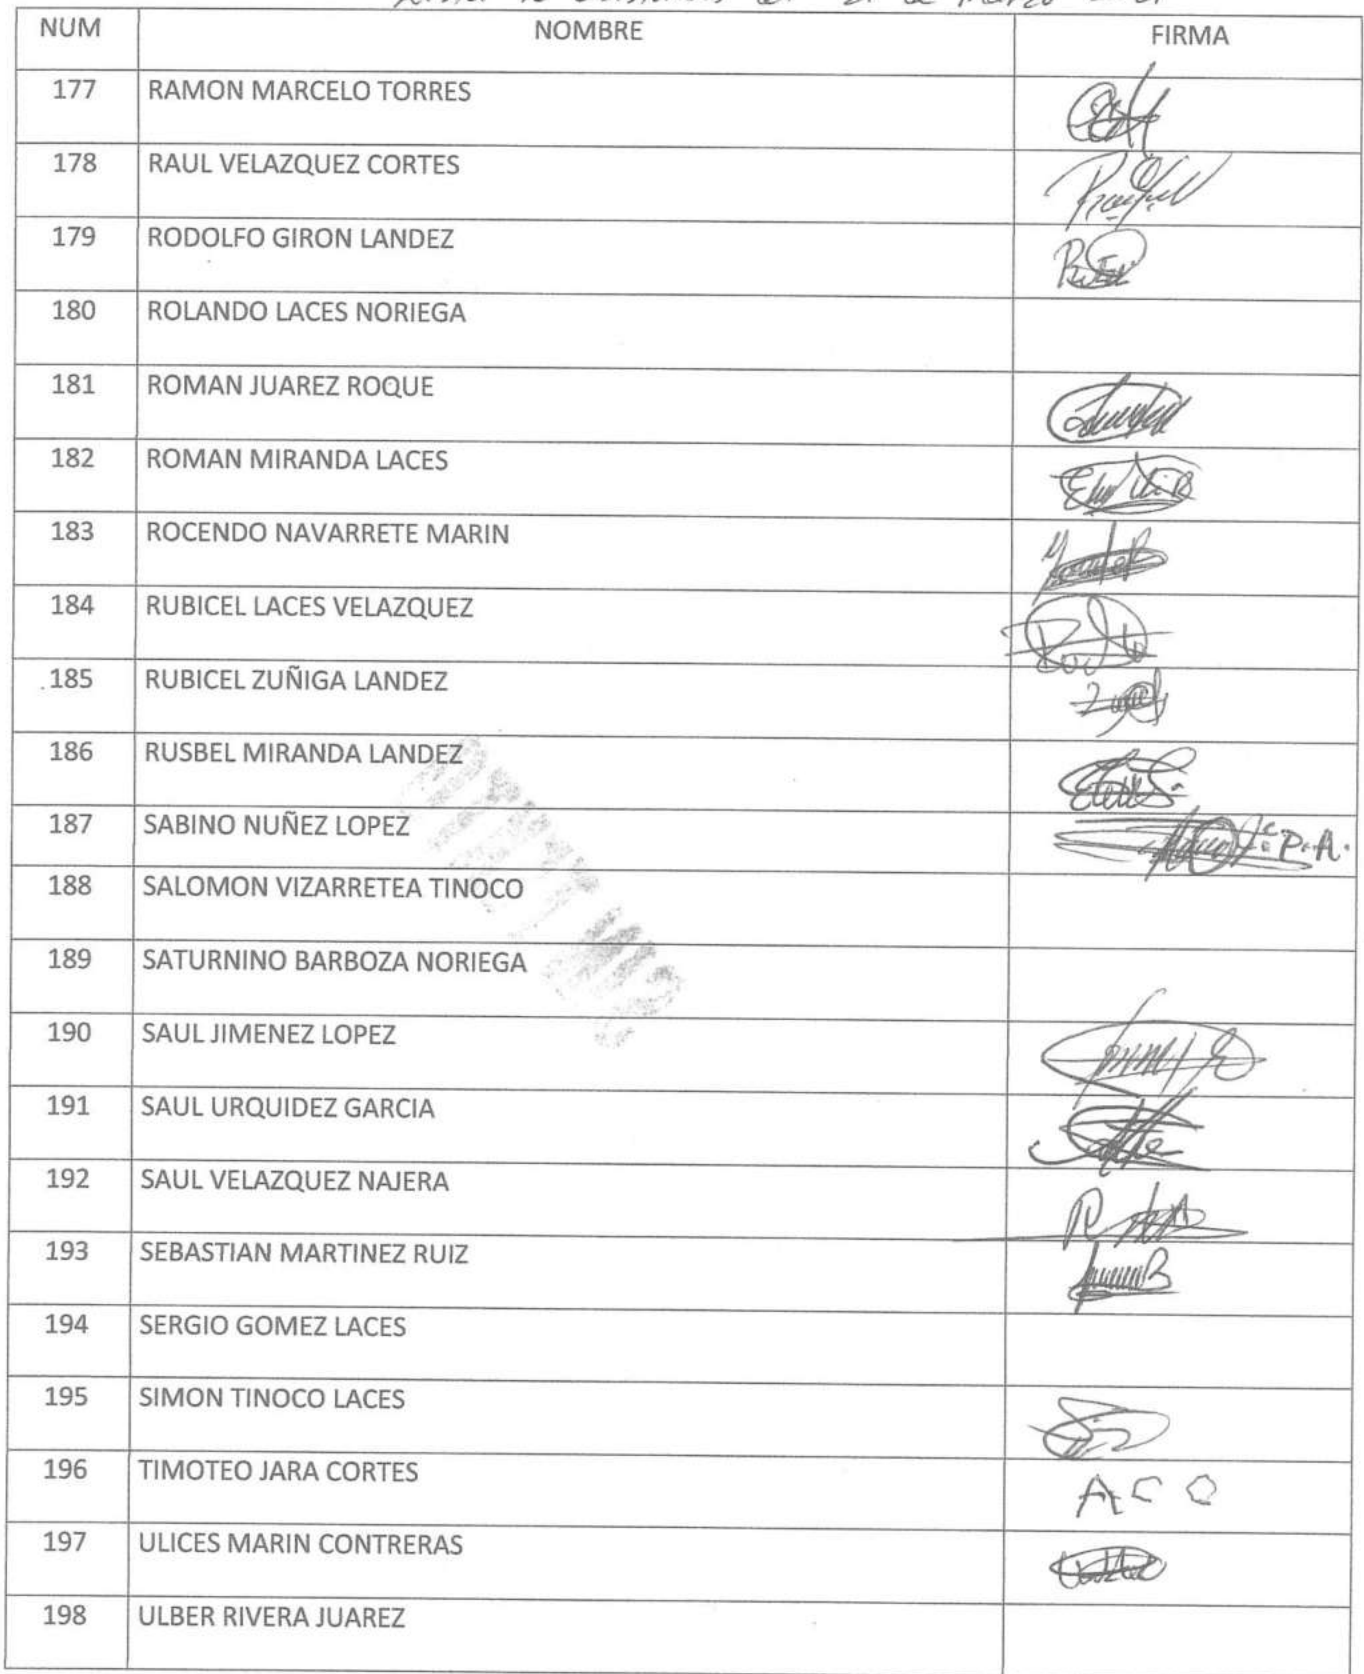 de Marzo
NUM NOMBRE FIRMA
177 RAMON MARCELO TORRES
178 RAUL VELAZQUEZ CORTES
179 RODOLFO GIRON LANDEZ
180 ROLANDO LACES NORIEGA
181 ROMAN JUAREZ ROQUE
182 ROMAN MIRANDA LACES
183 ROCENDO NAVARRETE MARIN
184 RUBICEL LACES VELAZQUEZ
185 RUBICEL ZUÑIGA LANDEZ
186 RUSBEL MIRANDA LANDEZ
187 SABINO NUÑEZ LOPEZ P.A.
188 SALOMON VIZARRETEA TINOCO
189 SATURNINO BARBOZA NORIEGA
190 SAUL JIMENEZ LOPEZ
191 SAUL URQUIDEZ GARCIA
192 SAUL VELAZQUEZ NAJERA
193 SEBASTIAN MARTINEZ RUIZ
194 SERGIO GOMEZ LACES
195 SIMON TINOCO LACES
196 TIMOTEO JARA CORTES
197 ULICES MARIN CONTRERAS
198 ULBER RIVERA JUAREZ